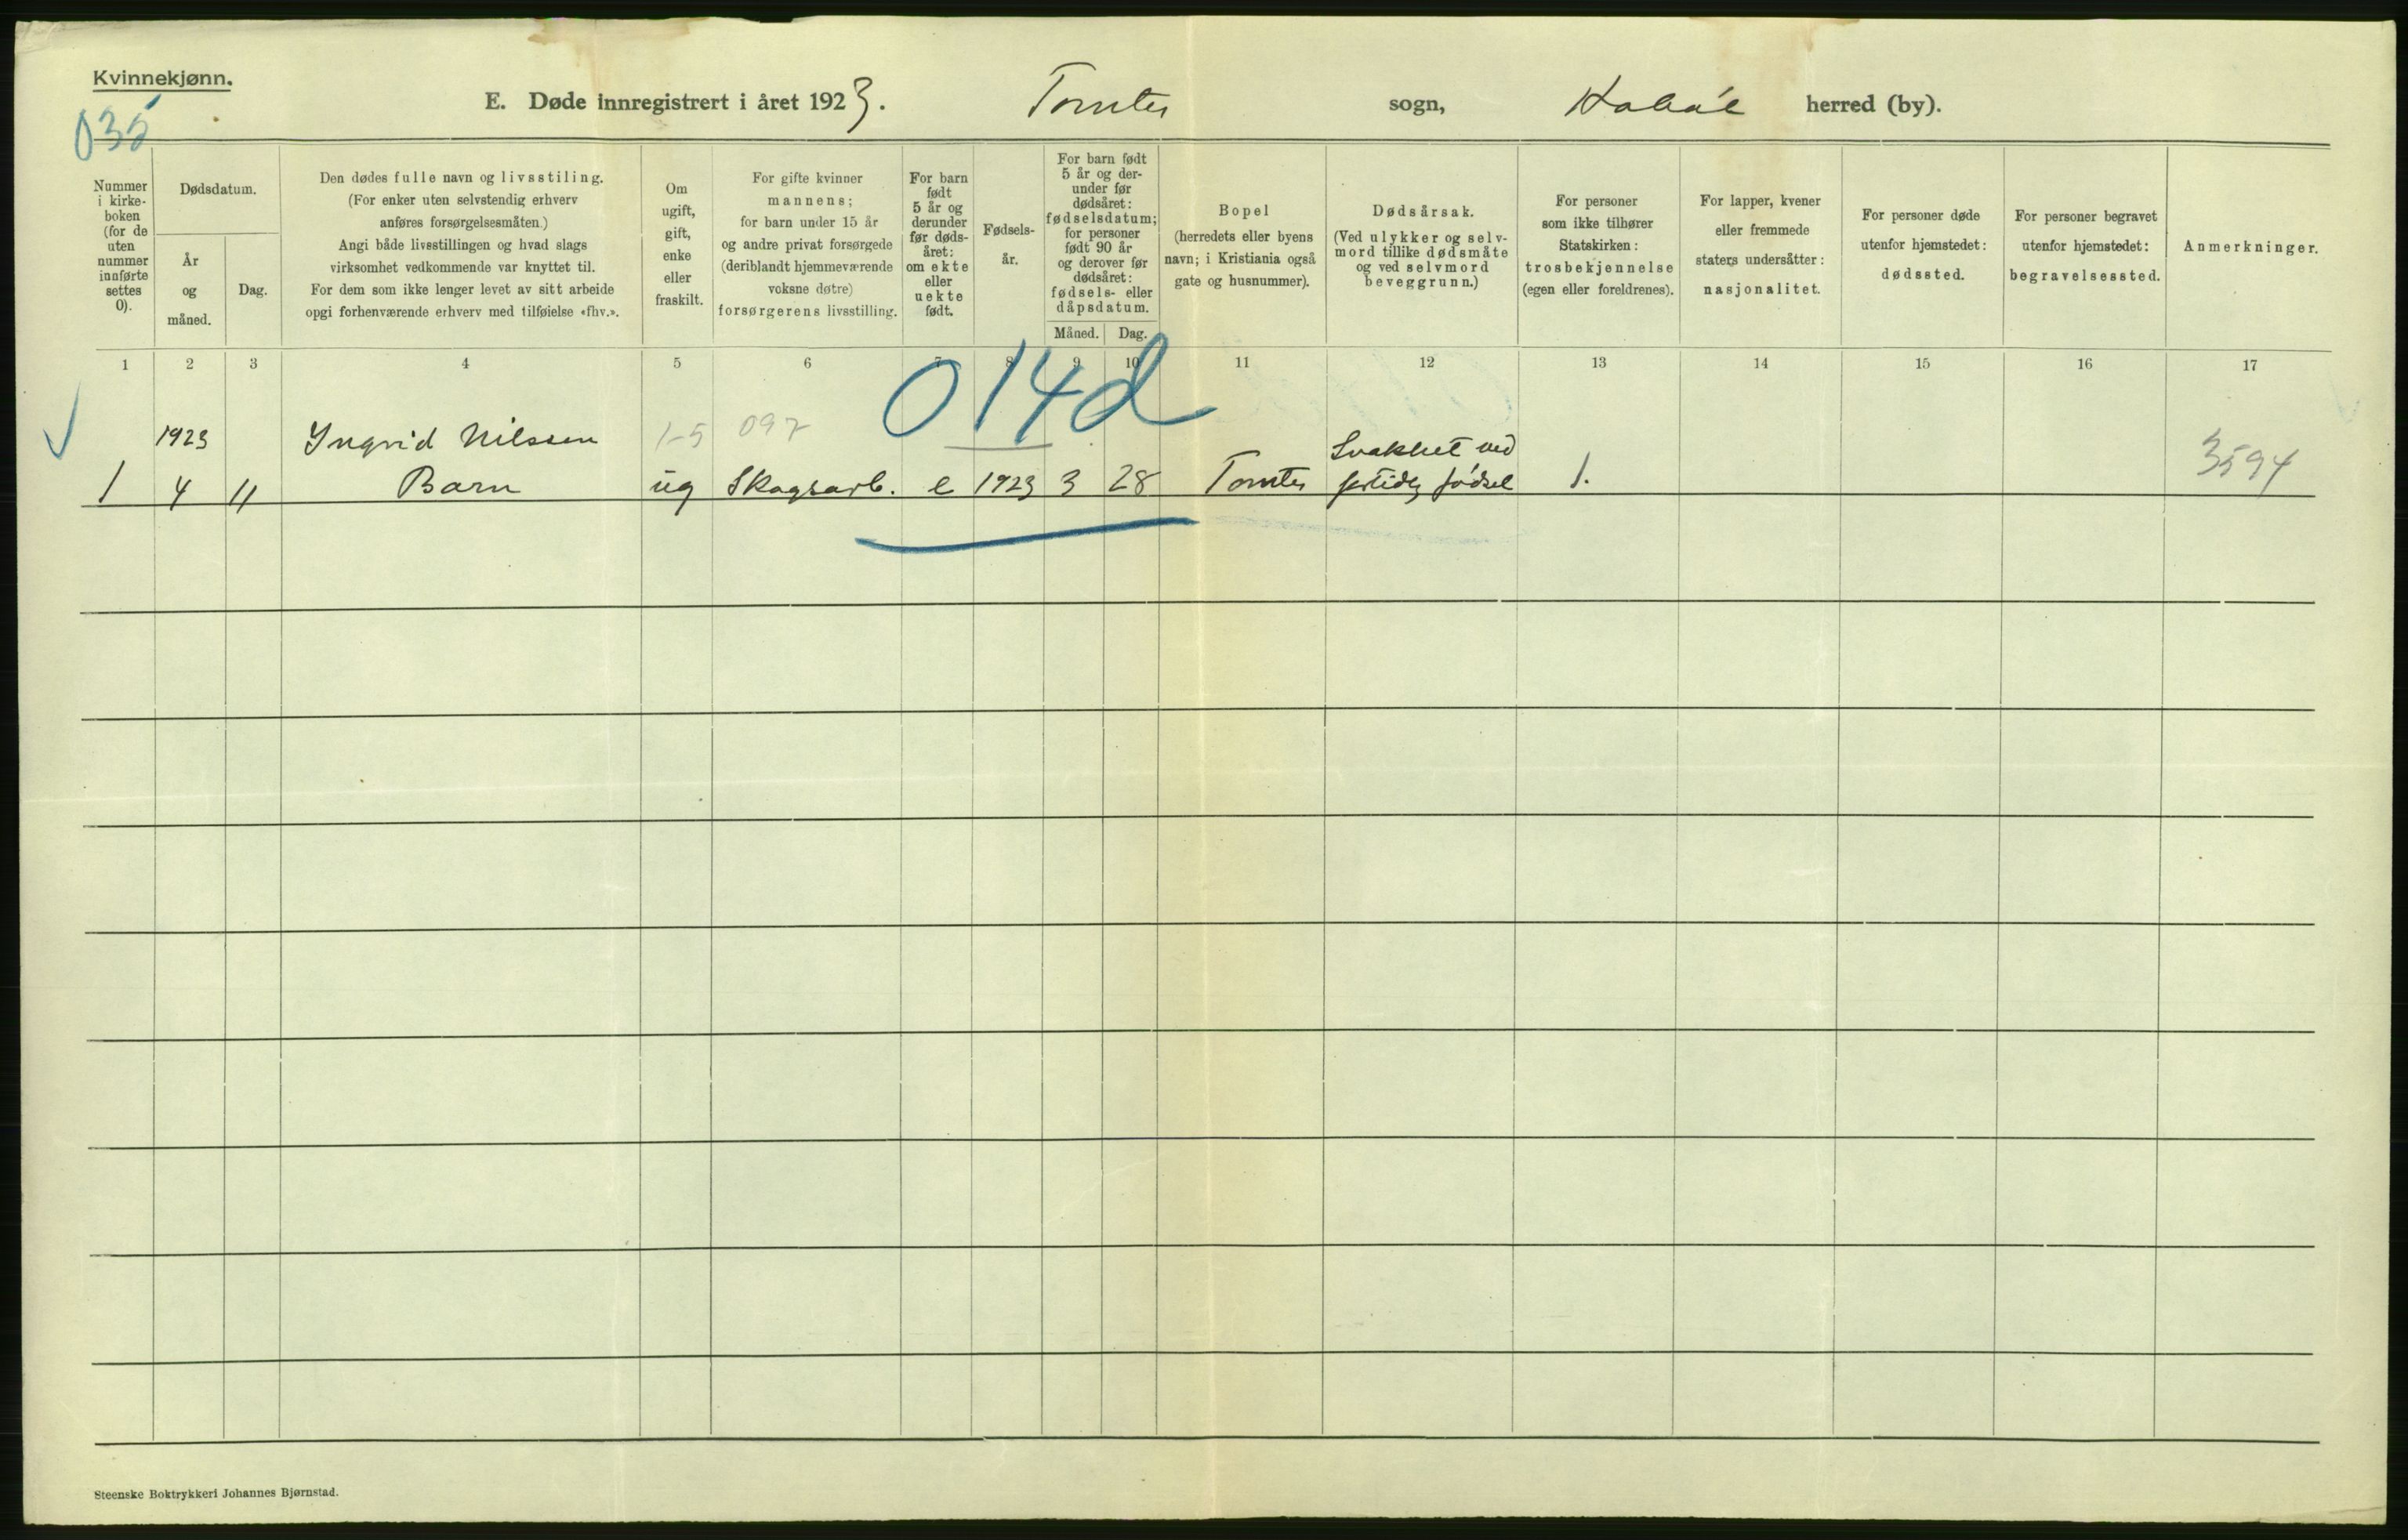 Kvinnekjønn.
035
E. Døde innregistrert i året 1923. Tomter sogn, Hobøl herred (by).
Nummer
i kirke-
boken
(for de
uten
nummer
innførte
settes
0).
Dødsdatum.
År
og
måned.
Dag.
Den dødes fulle navn og livsstiling.
(For enker uten selvstendig erhverv
anføres forsørgelsesmåten.)
Angi både livsstillingen og hvad slags
virksomhet vedkommende var knyttet til.
For dem som ikke lenger levet av sitt arbeide
opgi forhenværende erhverv med tilføielse «fhv.».
Om
ugift,
gift,
enke
eller
fraskilt.
For gifte kvinner
mannens;
for barn under 15 år
og andre privat forsørgede
(deriblandt hjemmeværende
voksne døtre)
forsørgerens livsstilling.
For barn
født
5 år og
derunder
før døds-
året:
om ekte
eller
uekte
født.
Fødsels-
år.
For barn født
5 år og der-
under før
dødsåret:
fødselsdatum;
for personer
født 90 år
og derover før
dødsåret:
fødsels- eller
dåpsdatum.
Måned. Dag.
Bopel
(herredets eller byens
navn; i Kristiania også
gate og husnummer).
Dødsårsak.
(Ved ulykker og selv-
mord tillike dødsmåte
og ved selvmord
beveggrunn.)
For personer
som ikke tilhører
Statskirken:
trosbekjennelse
(egen eller foreldrenes).
For lapper, kvener
eller fremmede
staters undersåtter:
nasjonalitet.
For personer døde
utenfor hjemstedet:
dødssted.
For personer begravet
utenfor hjemstedet:
begravelsessted.
Anmerkninger.
1 2 3 4 5 6 7 8 9 10 11 12 13 14 15 16 17
014d
1923 Ingrid Nilssen 1-5 097 Svakhet ved 3594
1 4 11 Barn ug Skogsarb. e 1923 3 28 Tomter fortidlig fødsel 1.
Steenske Boktrykkeri Johannes Bjørnstad.